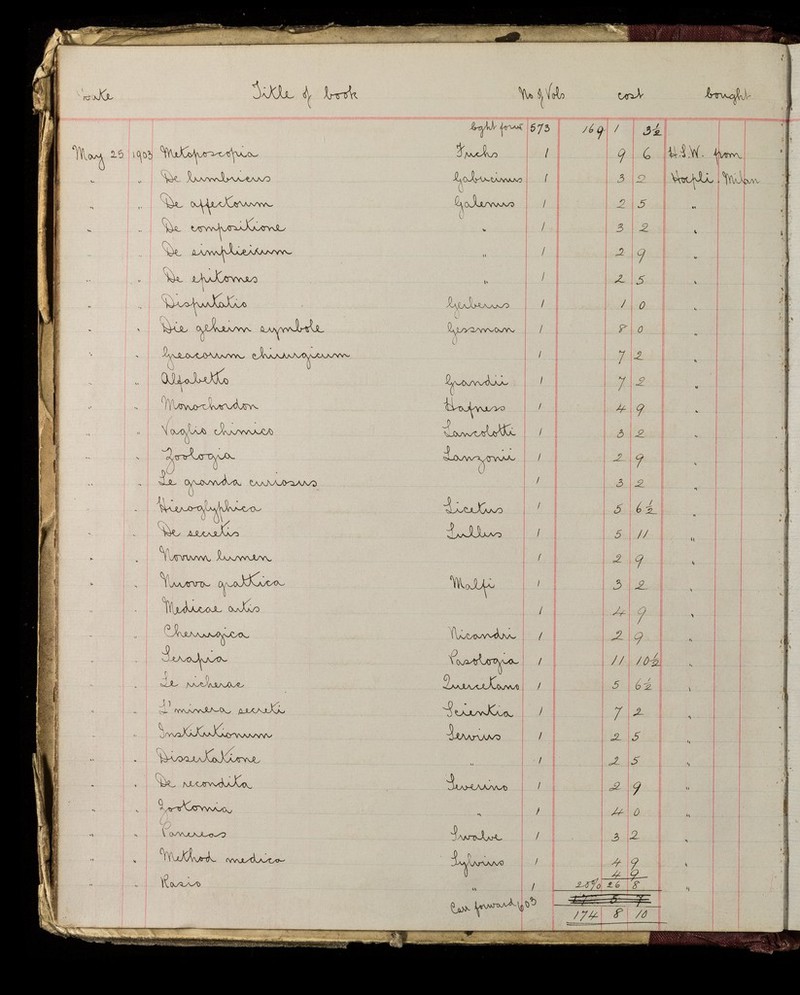 Date Title of book No of Vols cost bought
bght forwd 573 169 1 3½
May 25 1903 Metoposcopia Fuchs 1 9 6 H.S.W. from
" " De lumbricus Gabucinus 1 3 2 Hoepli. Milan
" " De affectorum Galenus 1 2 5 "
" " De compositione " 1 3 2 "
" " De simplicium " 1 2 9 "
" " De epitomes " 1 2 5 "
" " Disputatio Gerberus 1 1 0 "
" " Die geheim symbole Gessman 1 8 0 "
" " Greacorum chirurgicum 1 7 2
" " Alfabetto Grandii 1 7 2 "
" " Monochordon Hafness 1 4 9 "
" " Vaglio chimico Lancolotti 1 3 2 "
" " Zoologia Lanzonii 1 2 9 "
" " Le granda curiosus 1 3 2 "
" Hieroglyphica Licetus 1 5 6½ "
" " De secretis Lullus 1 5 11 "
" " Novum lumen 1 2 9 "
" " Nuova grattica Malfi 1 3 2 "
" " Medicae artis 1 4 9 "
" " Cherrurgica Nicandri 1 2 9 "
" " Serapia Pasologia 1 11 10½ "
" " Le richerac Quercetano 1 5 6½ "
" " L'minera secreti Scientia 1 7 2 "
" " Institutionum Servius 1 2 5 "
" " Dissertatione " 1 2 5 "
" " De recondita Severino 1 2 9 "
" " Zootomia " 1 4 0 "
" " Pancreas Swalve 1 3 2 "
" " Method medica Sylvino 1 4 9 "
4 9
" " Rasio " 1 20% 26 8 "
Carr forward 603
174 8 10